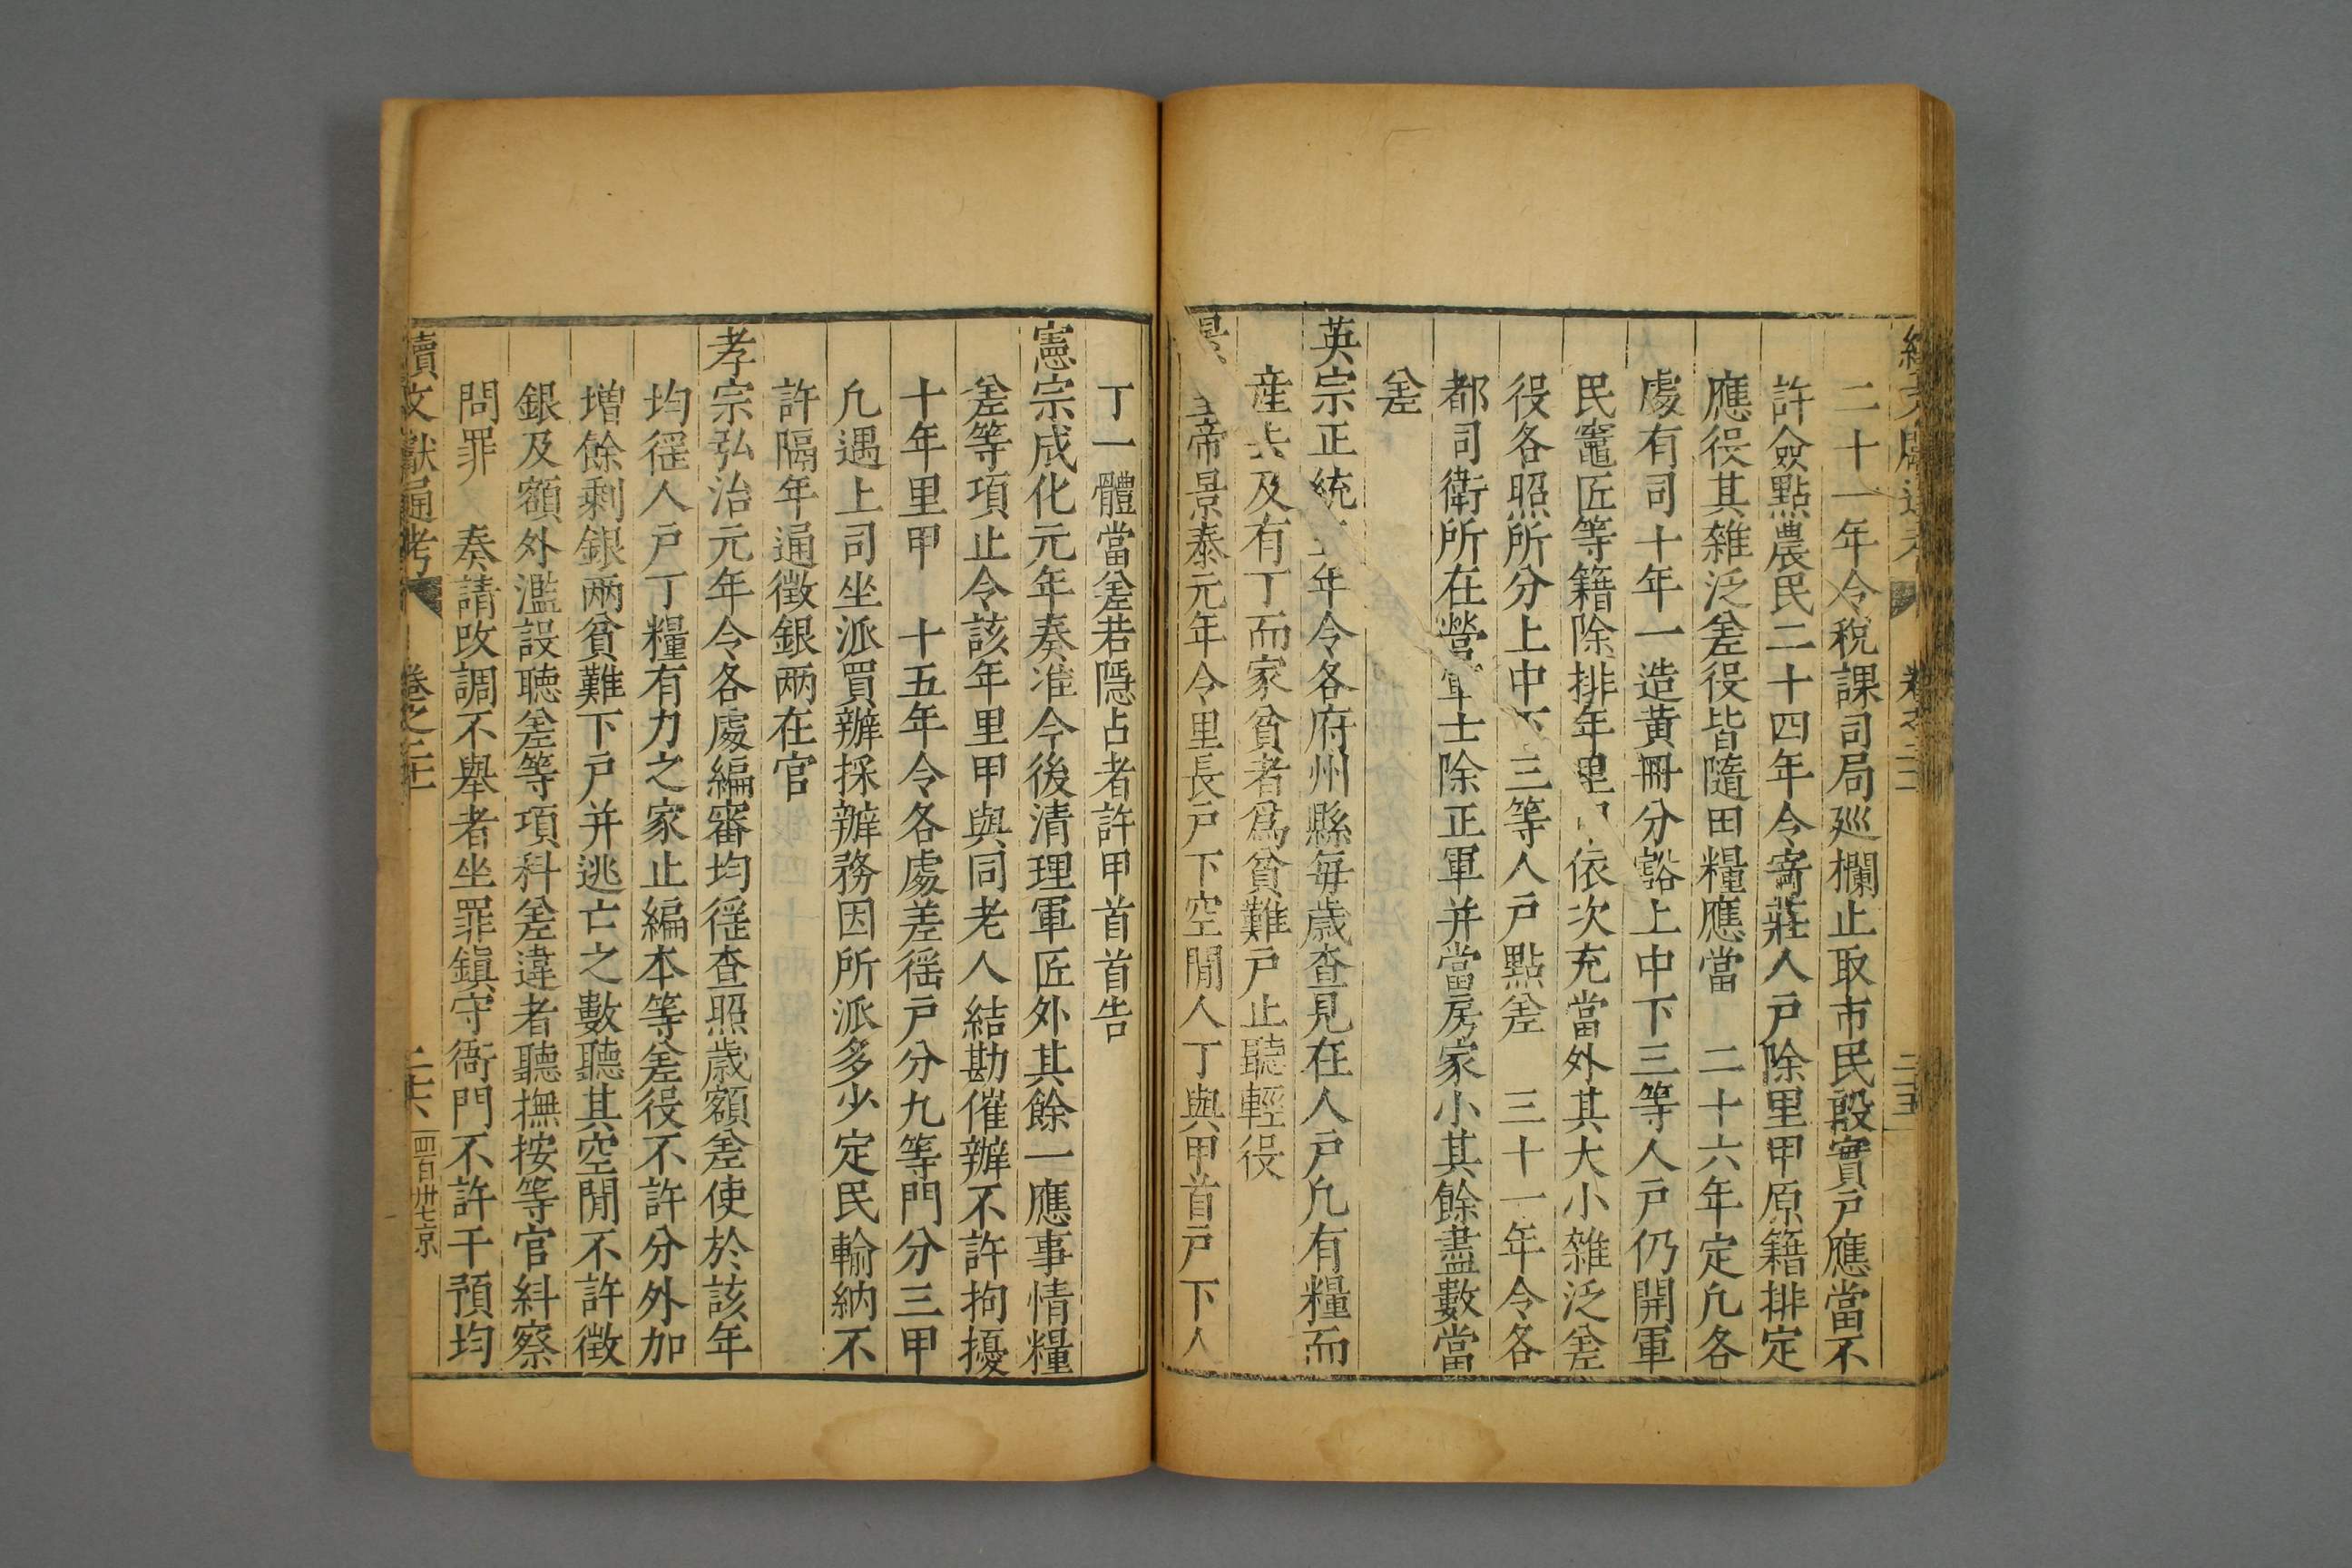 二十一年令稅課司局廵欄止取市民殷實戶應當不
許僉點農民二十四年令寄莊人戶除里甲原籍排定
應役其雜泛差役皆隨田糧應當　二十六年定凢各
處有司十年一造黃冊分豁上中下三等人戶仍開軍
民竈匠等籍除排年里依次充當外其大小雜泛差
役各照所分上中三等人戶點差　三十一年令各
都司衛所在營軍士除正軍并當房家小其餘盡數當
差
英宗正統年令各府州縣每歲查見在人戶凢有糧而
産去及有丁而家貧者爲貧難戶止聽輕役
景帝景泰元年令里長戶下空閒人丁與甲首戶下人
丁一體當差若隱占者許甲首首告
憲宗成化元年奏准今後清理軍匠外其餘一應事情糧
差等項止令該年里甲與同老人結勘催辦不許拘擾
十年里甲　十五年令各處差徭戶分九等門分三甲
凢遇上司坐派買辦採辦務因所派多少定民輸納不
許隔年通徵銀兩在官
孝宗弘治元年令各處編審均徭查照歲額差使於該年
均徭人戶丁糧有力之家止編本等差役不許分外加
增餘剩銀兩貧難下戶并逃亡之數聽其空閒不許徵
銀及額外濫設聽差等項科差違者聽撫按等官糾察
問罪　奏請改調不舉者坐罪鎭守衙門不許干預均
續文獻通考　卷之二十　二十六　四百卅七京